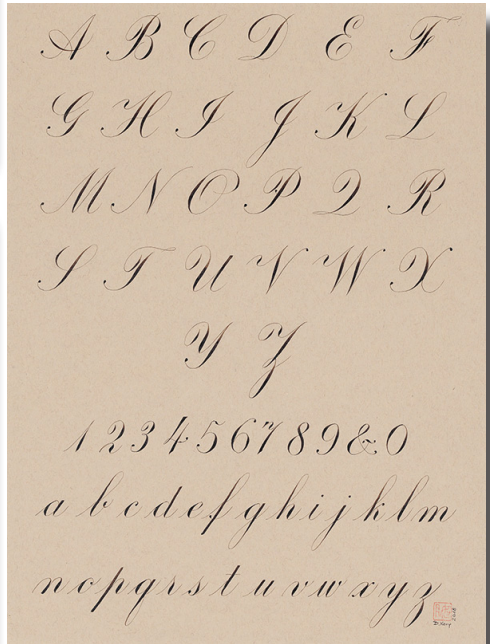 A B C D E F
G H I J K L
M N O P Q R
S T U V W X
Y Z
1 2 3 4 5 6 7 8 9 & 0
a b c d e f g h i j k l m
n o p q r s t u v w x y z